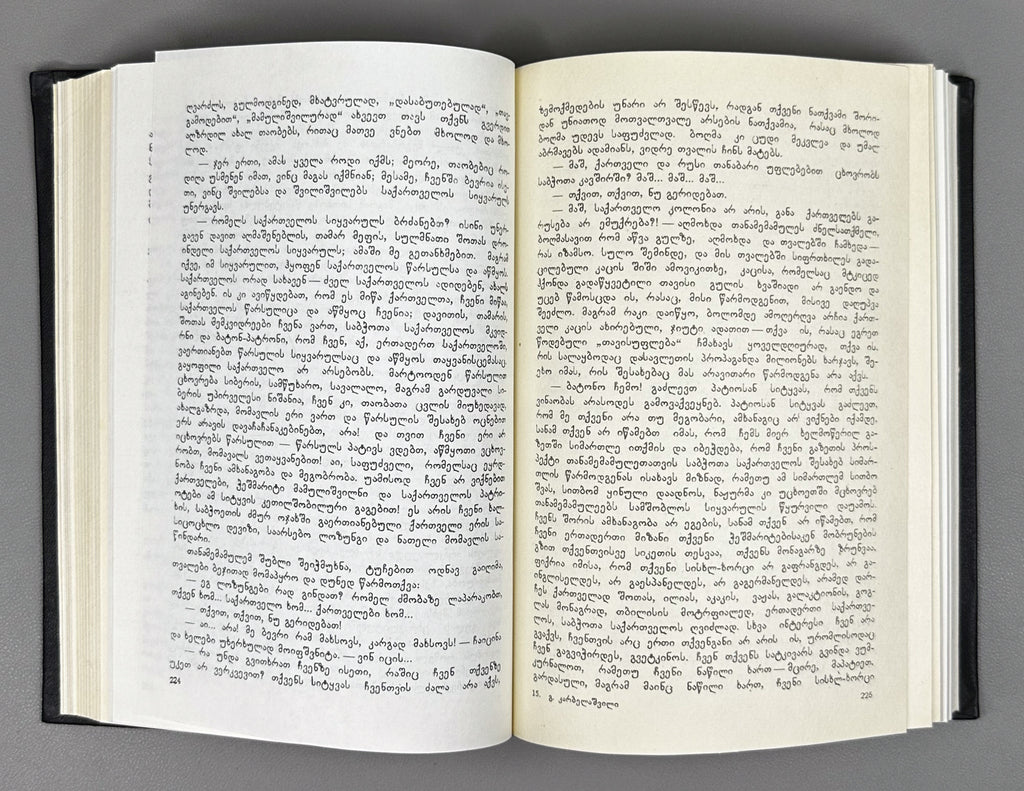 ღვარძლს, გულმოდგინედ, მხატვრულად, „დასაბუთებულად“, „თავ-
გამოდებით“, „მამულიშვილურად“ ახვევთ თავს თქვენს გვერდით
აღზრდილ ახალ თაობებს, რითაც მათვე ვნებთ მხოლოდ და მხო-
ლოდ.
— ჯერ ერთი, ამას ყველა როდი იქმს; მეორე, თაობებიც რო-
დილა უსმენენ იმათ, ვინც მაგას იქმნიან; მესამე, ჩვენში ბევრია ისე-
თი, ვინც შვილებსა და შვილიშვილებს საქართველოს სიყვარულს
უნერგავს.
— რომელს საქართველოს სიყვარულს ბრძანებთ? ისინი უნერ-
გავენ დავით აღმაშენებლის, თამარ მეფის, სულმნათი შოთას დრო-
ინდელი საქართველოს სიყვარულს; ამაში მე გეთანხმებით. მაგრამ
იქვე, იმ სიყვარულით, ჰყოფენ საქართველოს წარსულსა და აწმყოს,
საქართველოს ორად სახავენ — ძველ საქართველოს ადიდებენ, ახალს
აგინებენ. ის კი ავიწყდებათ, რომ ეს მიწა ქართველთა, ჩვენი მიწაა,
საქართველოს წარსულიცა და აწმყოც ჩვენია; დავითის, თამარის,
შოთას მემკვიდრეები ჩვენა ვართ, საბჭოთა საქართველოს მკვიდ-
რნი და ბატონ-პატრონი, რომ ჩვენ, აქ, ერთადერთ საქართველოში,
ვაერთიანებთ წარსულის სიყვარულსაც და აწმყოს თაყვანისცემასაც.
გაყოფილი საქართველო არ არსებობს. მარტოოდენ წარსულით
ცხოვრება სიბერის, სამწუხარო, სავალალო, მაგრამ გარდუვალი სი-
ბერის უპირველესი ნიშანია, ჩვენ კი, თაობათა ცვლის მიუხედავად,
ახალგაზრდა, მომავლის ერი ვართ და წარსულის შესახებ ოცნებით
ერს არავის დავაჩაჩანაკებინებთ, არა! და თვით ჩვენი ერი არ
იცხოვრებს წარსულით — წარსულს პატივს ვდებთ, აწმყოთი ვცხოვ-
რობთ, მომავალს ვეთაყვანებით! აი, საფუძველი, რომელსაც ეყრდ-
ნობა ჩვენი ამხანაგობა და მეგობრობა. უამისოდ ჩვენ არ ვიქნებით
ქართველები, ჭეშმარიტი მამულიშვილნი და საქართველოს პატრი-
ოტები ამ სიტყვის კეთილშობილური გაგებით! ეს არის ჩვენი ხალ-
ხის, საბჭოეთის ძმურ ოჯახში გაერთიანებული ქართველი ერის სა-
სიცოცხლო დევიზი, საარსებო ლოზუნგი და ნათელი მომავლის სა-
წინდარი.
თანამემამულემ შუბლი შეიჭმუხნა, ტუჩებით ოდნავ გაიღიმა,
თვალები ბეჯითად მომაპყრო და დუნედ წარმოთქვა:
— ეგ ლოზუნგები რად გინდათ? რომელ ძმობაზე ლაპარაკობთ,
თქვენ ხომ... საქართველო ხომ... ქართველები ხომ...
— თქვით, თქვით, ნუ გერიდებათ!
— აი... არა! მე ბევრი რამ მახსოვს, კარგად მახსოვს! — ჩაიცინა
და ხელები უხერხულად მოიფშვნიტა. — ვინ იცის...
— რა უნდა გვითხრათ ჩვენზე ისეთი, რაშიც ჩვენ თქვენზე
უკეთ არ ვერკვევით? თქვენს სიტყვას ჩვენთვის ძალა არა აქვს,
224
ზემოქმედების უნარი არ შესწევს, რადგან თქვენი ნათქვამი შორი-
დან უნიათოდ მოთვალთვალე არსების ნათქვამია, რასაც მხოლოდ
ბოღმა უდევს საფუძვლად. ბოღმა კი ცუდი მეკვლეა და უმალ
აბრმავებს ადამიანს, ვიდრე თვალის ჩინს მატებს.
— მაშ, ქართველი და რუსი თანაბარი უფლებებით ცხოვრობს
საბჭოთა კავშირში? მაშ... მაშ... მაშ...
— თქვით, თქვით, ნუ გერიდებათ.
— მაშ, საქართველო კოლონია არ არის, განა ქართველებს გა-
რუსება არ ემუქრება?! — აღმოხდა თანამემამულეს ძნელსათქმელი,
ბოღმასავით რომ აწვა გულზე, აღმოხდა და თვალებში ჩამხედა —
რას იზამსო. სულო შემინდე, და მის თვალებში სიფრთხილეს გადა-
ცილებული კაცის შიში ამოვიკითხე, კაცისა, რომელსაც მტკიცედ
ჰქონდა გადაწყვეტილი თავისი გულის ხვაშიადი არ გაენდო და
უცებ წამოსცდა ის, რასაც, მისი წარმოდგენით, მისივე დაღუპვა
შეეძლო. მაგრამ რაკი დაიწყო, ბოლომდე ამოღერღვა არჩია ქართ-
ველი კაცის ახირებული, ჯიუტი ადათით — თქვა ის, რასაც ეგრეთ
წოდებული „თავისუფლება“ ჩმახავს ყოველდღიურად, თქვა ის,
რის სალაყბოდაც დასავლეთის პროპაგანდა მილიონებს ხარჯავს, შე-
ეხო იმას, რის შესახებაც მას არავითარი წარმოდგენა არ აქვს.
— ბატონო ჩემო! გაძლევთ პატიოსან სიტყვას, რომ თქვენს
ვინაობას არასოდეს გამოვაქვეყნებ. პატიოსან სიტყვას გაძლევთ,
რომ მე თქვენი არა თუ მეგობარი, ამხანაგიც არ ვიქნები იქამდე,
სანამ თქვენ არ იწამებთ იმას, რომ ჩემს მიერ ხელმოწერილ გა-
ზეთში სიმართლე ითქმის და იბეჭდება, რომ ჩვენი გაზეთის პროს-
პექტი თანამემამულეთათვის საბჭოთა საქართველოს შესახებ სიმარ-
თლის წარმოდგენას ისახავს მიზნად, რამეთუ ამ სიმართლემ სითბო
შვას, სითბომ ყინული დაადნოს, ნაჟურმა კი უცხოეთში მცხოვრებ
თანამემამულეებს სამშობლოს სიყვარულის წყურვილი დაუამოს.
ჩვენს შორის ამხანაგობა არ ეგების, სანამ თქვენ არ იწამებთ, რომ
ჩვენი ერთადერთი მიზანი თქვენი ჭეშმარიტებისაკენ მობრუნების
გზით თქვენთვისვე სიკეთის თესვაა, თქვენს მონაგარზე ზრუნვაა.
ფიქრია იმისა, რომ თქვენი სისხლ-ხორცი არ გაფრანგდეს, არ გა-
ინგლისელდეს, არ გაესპანელდეს, არ გაგერმანელდეს, არამედ დარ-
ჩეს ქართველად შოთას, ილიას, აკაკის, ვაჟას, გალაკტიონის, გოგ-
ლას მონაგრად, თბილისის მოტრფიალედ, ერთადერთი საქართვე-
ლოს, საბჭოთა საქართველოს ღვიძლად. სხვა ინტერესი ჩვენ არა
გვაქვს, ჩვენთვის არც ერთი თქვენგანი არ არის ის, ურომლისოდაც
ჩვენ გაგვიჭირდეს, გვეტკინოს. ჩვენ თქვენს სატკივარს გვინდა ვუმ-
კურნალოთ, რამეთუ ჩვენი ნაწილი ხართ — მცირე, მაპატიეთ,
გარდასული, მაგრამ მაინც ნაწილი ხართ, ჩვენი სისხლ-ხორცი
15. გ. კარბელაშვილი
225